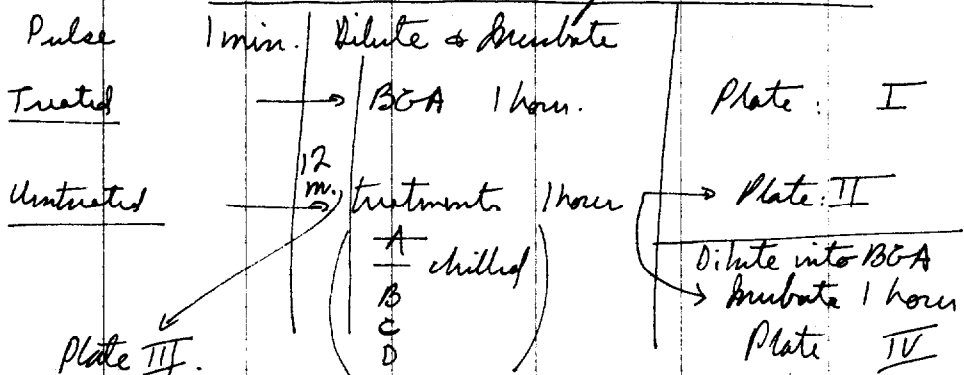 Pulse 1 min. Dilute & Incubate
Treated → BGA 1 hour. Plate: I
12 m.
Untreated → treatments 1 hour → Plate: II
A
— chilled
B
C
D
Dilute into BGA
→ Incubate 1 hour
Plate III.
Plate IV